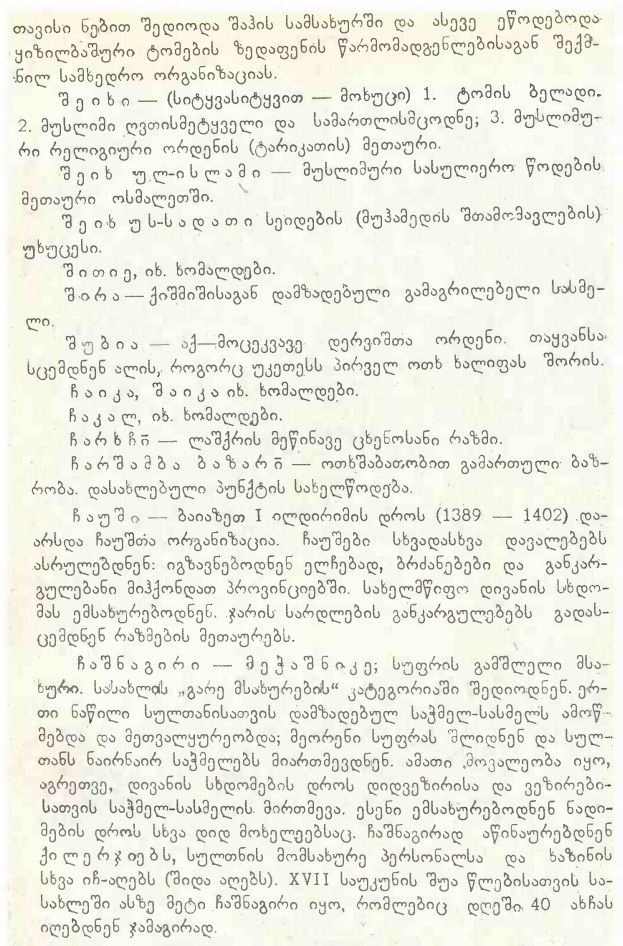 თავისი ნებით შედიოდა შაჰის სამსახურში და ასევე ეწოდებოდა
ყიზილბაშური ტომების ზედაფენის წარმომადგენლებისაგან შექმ-
ნილ სამხედრო ორგანიზაციას.
შ ე ი ხ ი — (სიტყვასიტყვით — მოხუცი) 1. ტომის ბელადი.
2. მუსლიმი ღვთისმეტყველი და სამართლისმცოდნე; 3. მუსლიმუ-
რი რელიგიური ორდენის (ტარიკათის) მეთაური.
შ ე ი ხ უ ლ-ი ს ლ ა მ ი — მუსლიმური სასულიერო წოდების
მეთაური ოსმალეთში.
შ ე ი ხ უ ს-ს ა დ ა თ ი სეიდების (მუჰამედის შთამომავლების)
უხუცესი.
შ ი თ ი ე, იხ. ხომალდები.
შ ი რ ა — ქიშმიშისაგან დამზადებული გამაგრილებელი სასმე-
ლი.
შ უ ბ ი ა — აქ—მოცეკვავე დერვიშთა ორდენი. თაყვანსა
სცემდნენ ალის, როგორც უკეთესს პირველ ოთხ ხალიფას შორის.
ჩ ა ი კ ა, შ ა ი კ ა იხ. ხომალდები.
ჩ ა კ ა ლ, იხ. ხომალდები.
ჩ ა რ ხ ჩ ჲ̄ — ლაშქრის მეწინავე ცხენოსანი რაზმი.
ჩ ა რ შ ა მ ბ ა ბ ა ზ ა რ ო̄ — ოთხშაბათობით გამართული ბაზ-
რობა. დასახლებული პუნქტის სახელწოდება.
ჩ ა უ შ ი — ბაიაზეთ I ილდირიმის დროს (1389 — 1402) და-
არსდა ჩაუშთა ორგანიზაცია. ჩაუშები სხვადასხვა დავალებებს
ასრულებდნენ: იგზავნებოდნენ ელჩებად, ბრძანებები და განკარ-
გულებანი მიჰქონდათ პროვინციებში. სახელმწიფო დივანის სხდო-
მას ემსახურებოდნენ. ჯარის სარდლების განკარგულებებს გადას-
ცემდნენ რაზმების მეთაურებს.
ჩ ა შ ნ ა გ ი რ ი — მ ე ჭ ა შ ნ ი კ ე; სუფრის გამშლელი მსა-
ხური. სასახლის „გარე მსახურების“ კატეგორიაში შედიოდნენ. ერ-
თი ნაწილი სულთანისათვის დამზადებულ საჭმელ-სასმელს ამოწ-
მებდა და მეთვალყურეობდა; მეორენი სუფრას შლიდნენ და სულ-
თანს ნაირნაირ საჭმელებს მიართმევდნენ. ამათი მოვალეობა იყო,
აგრეთვე, დივანის სხდომების დროს დიდვეზირისა და ვეზირები-
სათვის საჭმელ-სასმელის მირთმევა. ესენი ემსახურებოდნენ ნადი-
მების დროს სხვა დიდ მოხელეებსაც. ჩაშნაგირად აწინაურებდნენ
ქ ი ლ ე რ ჯ ი ე ბ ს, სულთნის მომსახურე პერსონალსა და ხაზინის
სხვა იჩ-აღებს (შიდა აღებს). XVII საუკუნის შუა წლებისათვის სა-
სახლეში ასზე მეტი ჩაშნაგირი იყო, რომლებიც დღეში 40 ახჩას
იღებდნენ ჯამაგირად.